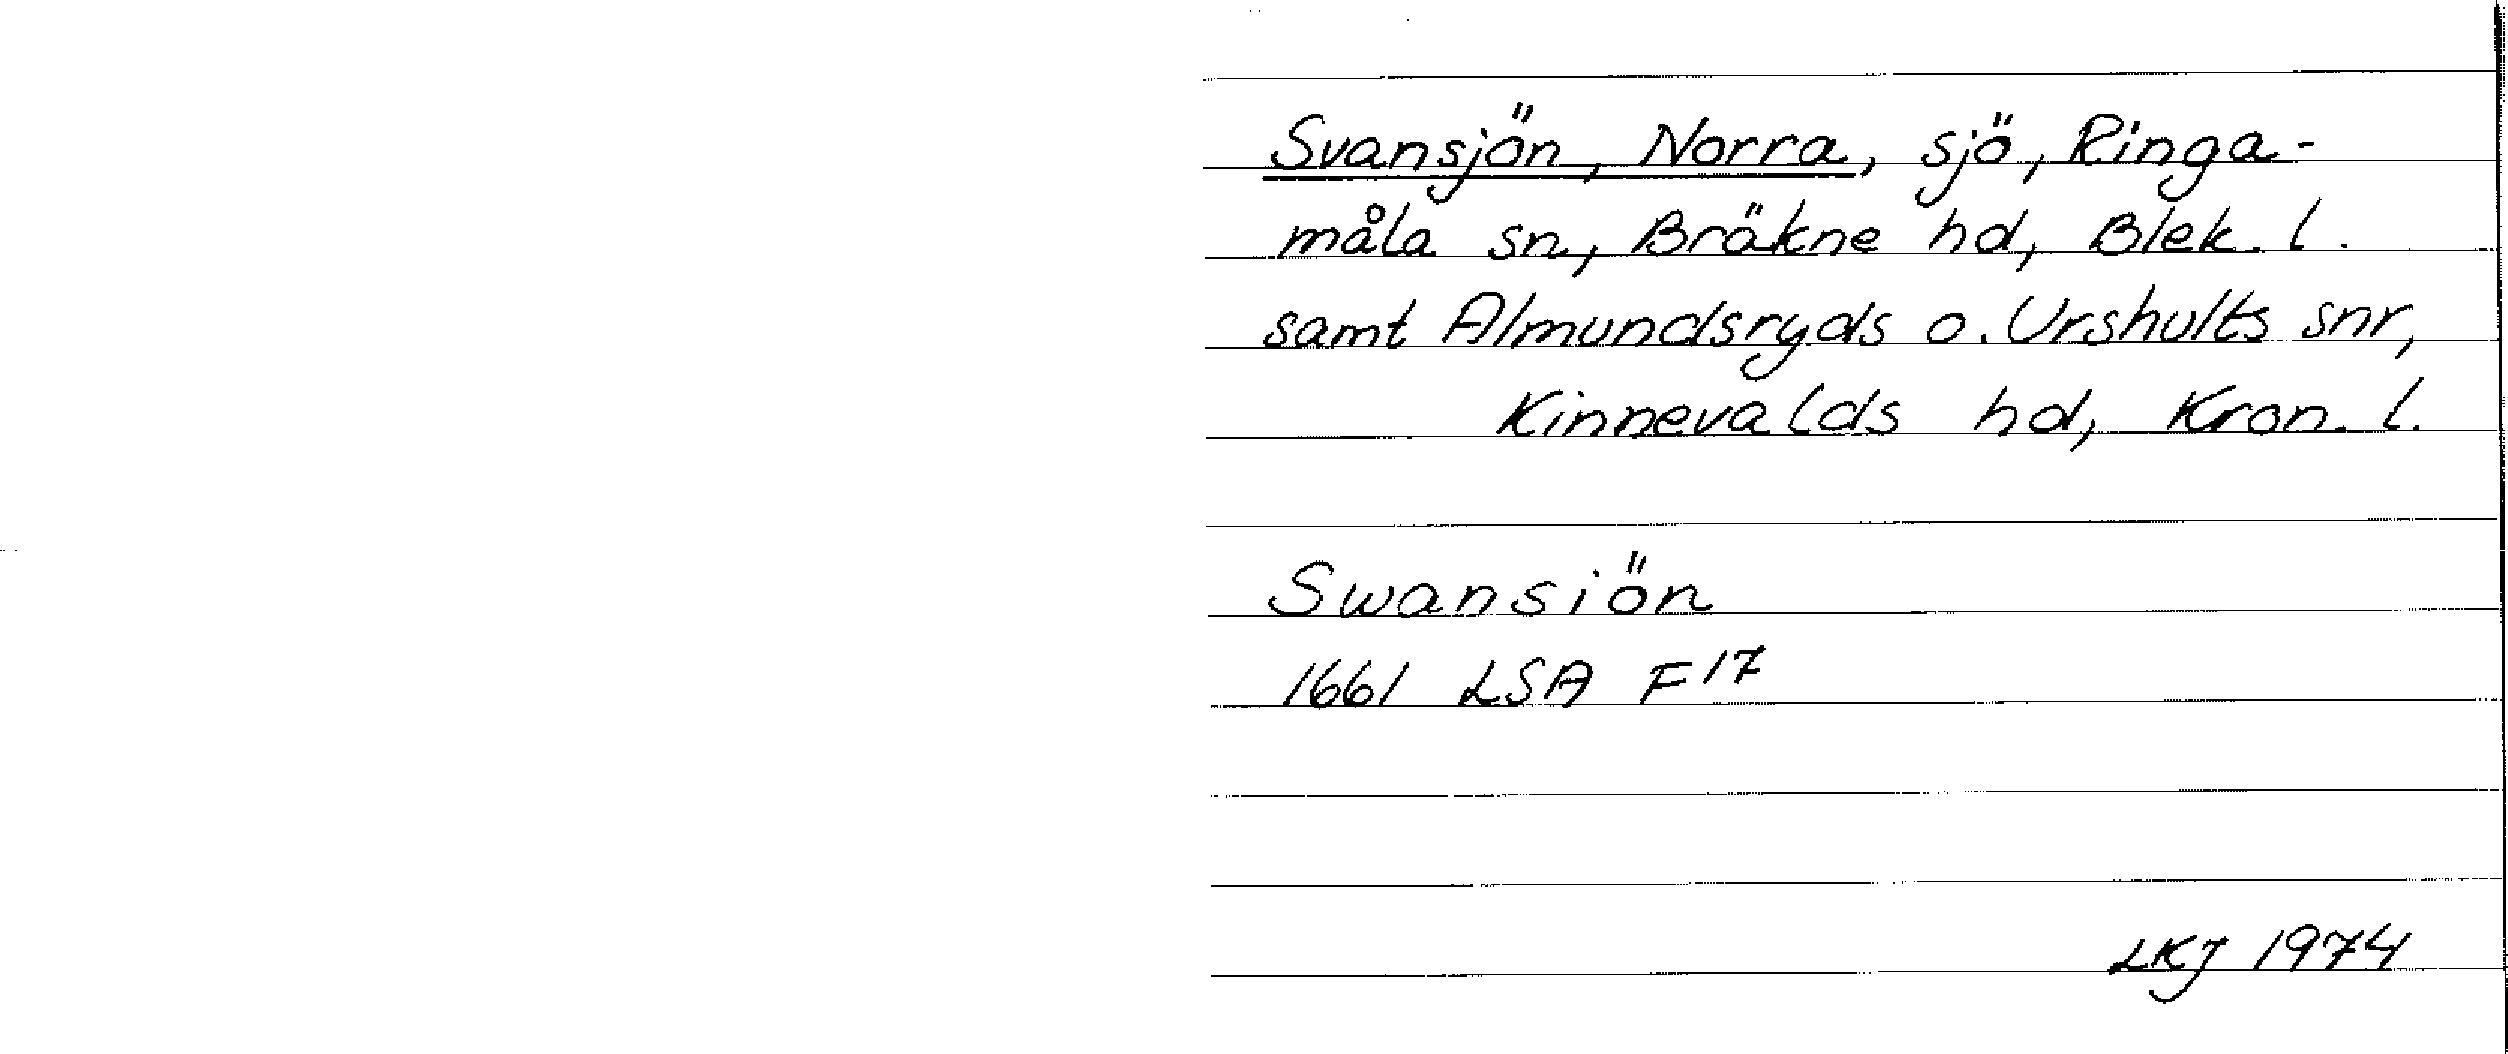 Svansjön, Norra, sjö, Ringa-
måla sn, Bräkne hd, Blek. l.
samt Almundsryds o. Urshults snr,
Kinnevalds hd, Kron. l.
Swansiön
1661 LSA F17
LKJ 1974